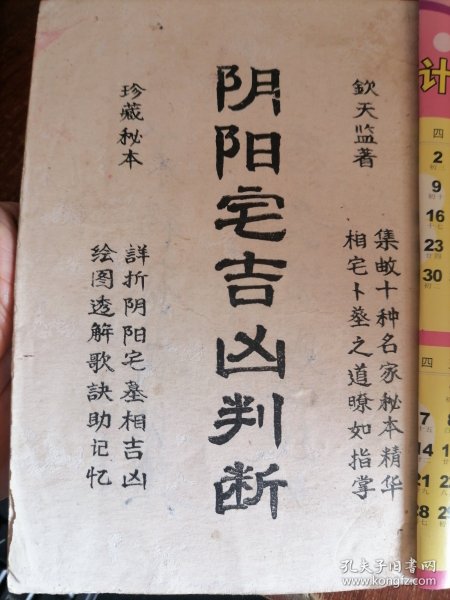 欽天监著
集畝十种名家秘本精华
相宅卜塟之道瞭如指掌
阴阳宅吉凶判断
珍藏秘本
詳折阴阳宅墓相吉凶
绘图透解歌訣助记忆
计
四
2
9
16
23
30
四
7
14
21
28
孔夫子旧书网
www.kongfz.com